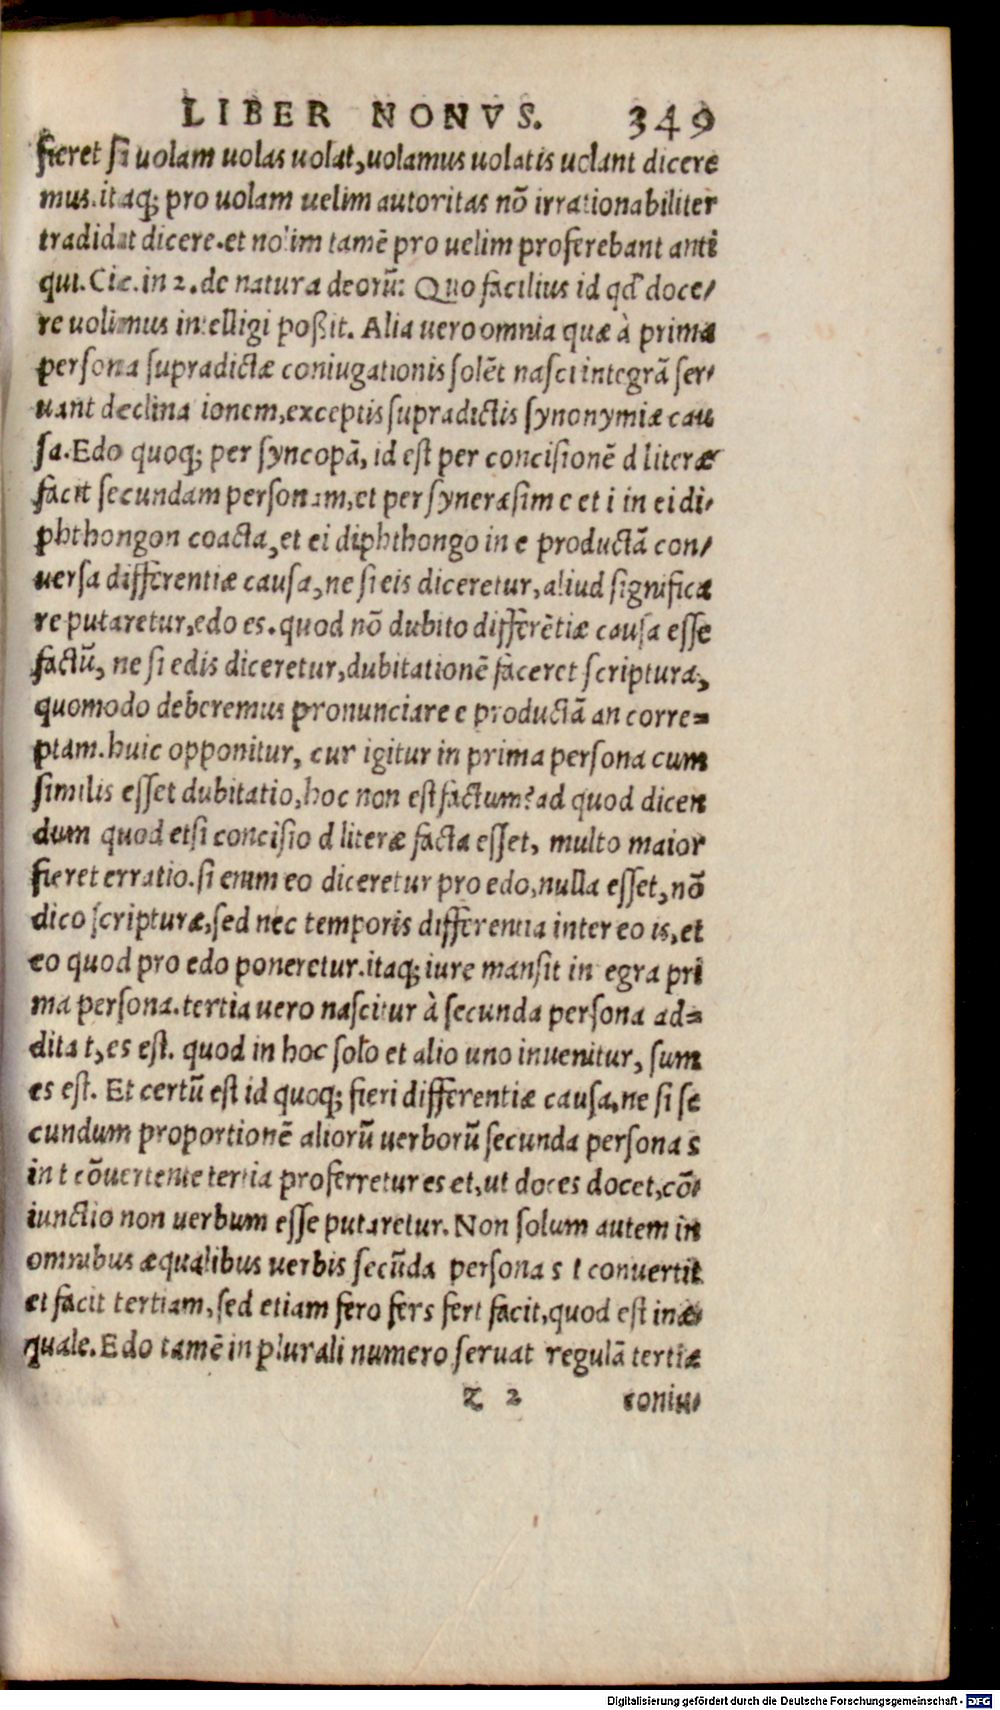 LIBER NONVS. 349
fieret si uolam uolas uolat, uolamus uolatis uolant dicere
mus. itaq; pro uolam uelim autoritas nō irrationabiliter
tradidit dicere. et nolim tamē pro uelim proferebant anti
qui. Cic. in 2. de natura deorū: Quo facilius id qđ doce/
re uolimus intelligi poßit. Alia uero omnia quæ à prima
persona supradictæ coniugationis solēt nasci integrā ser/
uant declinationem, exceptis supradictis synonymiæ cau
sa. Edo quoq; per syncopā, id est per concisionē d literæ
facit secundam personam, et per syneræsim e et i in ei di/
phthongon coacta, et ei diphthongo in e productā con/
uersa differentiæ causa, ne si eis diceretur, aliud significa
re putaretur, edo es. quod nō dubito differētiæ causa esse
factū, ne si edis diceretur, dubitationē faceret scriptura,
quomodo deberemus pronunciare e productā an corre=
ptam. huic opponitur, cur igitur in prima persona cum
similis esset dubitatio, hoc non est factum? ad quod dicen
dum quod etsi concisio d literæ facta esset, multo maior
fieret erratio. si enim eo diceretur pro edo, nulla esset, nō
dico scripturæ, sed nec temporis differentia inter eo is, et
eo quod pro edo poneretur. itaq; iure mansit integra pri
ma persona. tertia uero nascitur à secunda persona ad=
dita t, es est. quod in hoc solo et alio uno inuenitur, sum
es est. Et certū est id quoq; fieri differentiæ causa, ne si se
cundum proportionē aliorū uerborū secunda persona s
in t cōuertente tertia proferretur es et, ut doces docet, cō/
iunctio non uerbum esse putaretur. Non solum autem in
omnibus æqualibus uerbis secūda persona s t conuertit
et facit tertiam, sed etiam fero fers fert facit, quod est inæ/
quale. Edo tamē in plurali numero seruat regulā tertiæ
Z 2 coniu/
Digitalisierung gefördert durch die Deutsche Forschungsgemeinschaft - DFG